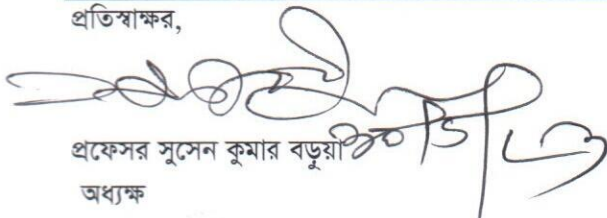 প্রতিস্বাক্ষর,
প্রফেসর সুসেন কুমার বড়ুয়া
অধ্যক্ষ